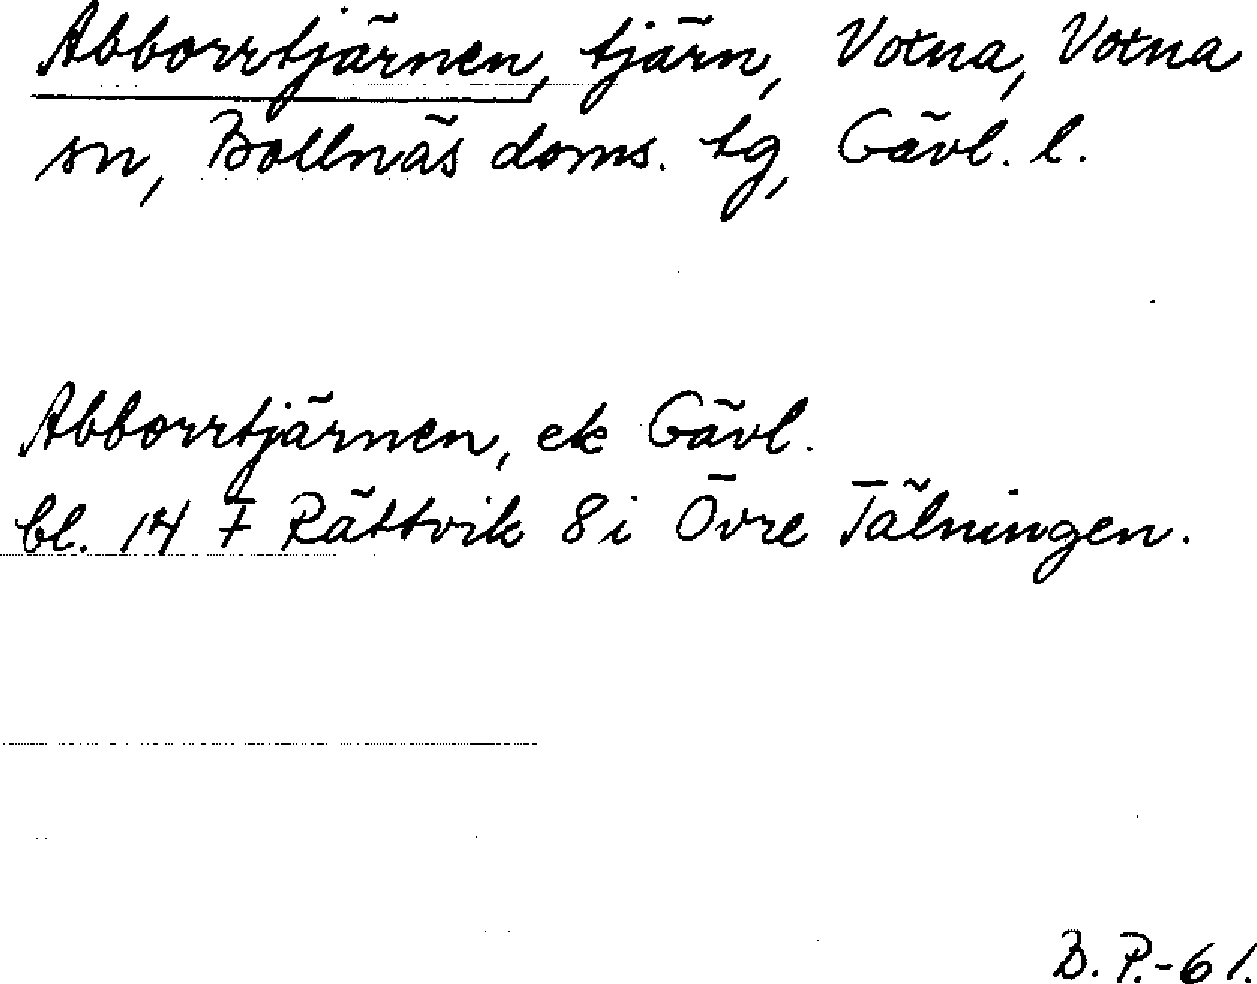 Abborrtjärnen, tjärn, Votna, Votna
sn, Bollnäs doms. tg, Gävl. l.
Abborrtjärnen, ek Gävl.
bl. 14 F Rättvik 8i Övre Tälningen.
B. P.-61.